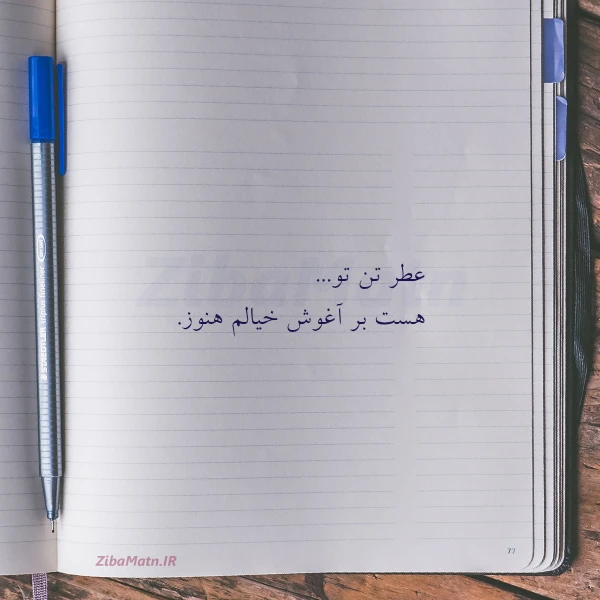 عطر تن تو...
هست بر آغوش خیالم هنوز.
ZibaMatn
ZibaMatn.IR
77